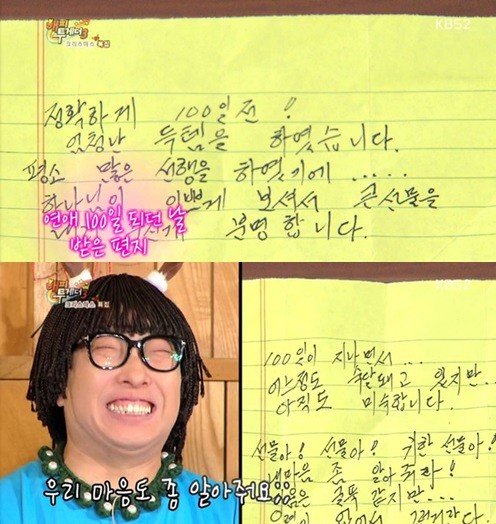 해피
투게더3
크리스마스 특집
KBS2
정확하게 100일전!
엄청난 득템을 하였습니다.
평소 많은 선행을 하였기에.....
하나님이 이쁘게 보셔서 큰선물을
분명합니다.
연애 100일 되던 날
받은 편지
해피
투게더3
크리스마스 특집
우리 마음도 좀 알아줘요
KBS2
100일이 지나면서...
어느정도 속알되고 있지만...
아직도 미숙합니다.
선물아! 선물아! 귀한 선물아!
내마음 좀 알아줘라!
굴뚝 같지만...